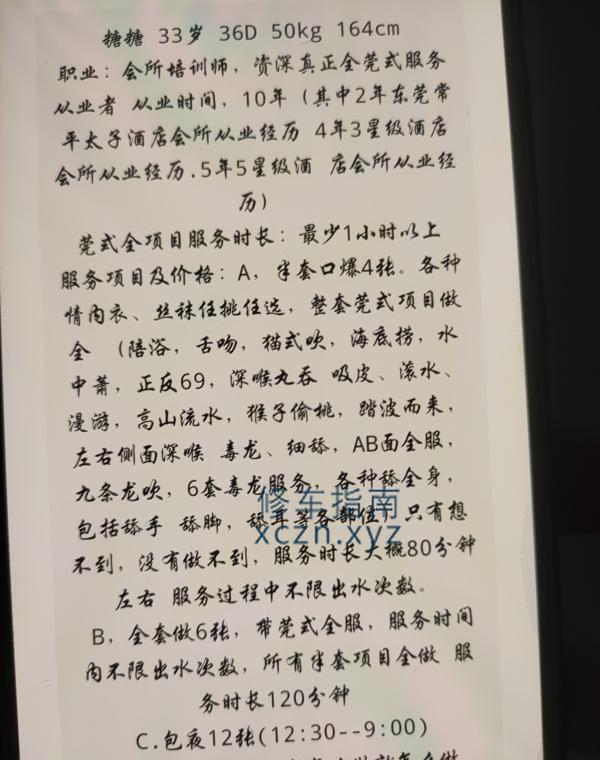 糖糖 33岁 36D 50kg 164cm
职业：会所培训师，资深真正全莞式服务
从业者 从业时间，10年（其中2年东莞常
平太子酒店会所从业经历 4年3星级酒店
会所从业经历.5年5星级酒 店会所从业经
历）
莞式全项目服务时长：最少1小时以上
服务项目及价格：A，半套口爆4张。各种
情内衣、丝袜任挑任选，整套莞式项目做
全 （陪浴，舌吻，猫式吹，海底捞，水
中萧，正反69，深喉九吞 吸皮、滚水、
漫游，高山流水，猴子偷桃，踏波而来，
左右侧面深喉 毒龙、细舔，AB面全服，
九条龙吹，6套毒龙服务，各种舔全身，
包括舔手 舔脚，舔耳等各部位，只有想
不到，没有做不到，服务时长大概80分钟
左右 服务过程中不限出水次数。
B，全套做6张，带莞式全服，服务时间
内不限出水次数，所有半套项目全做 服
务时长120分钟
C.包夜12张(12:30--9:00)
修车指南
xczn.xyz